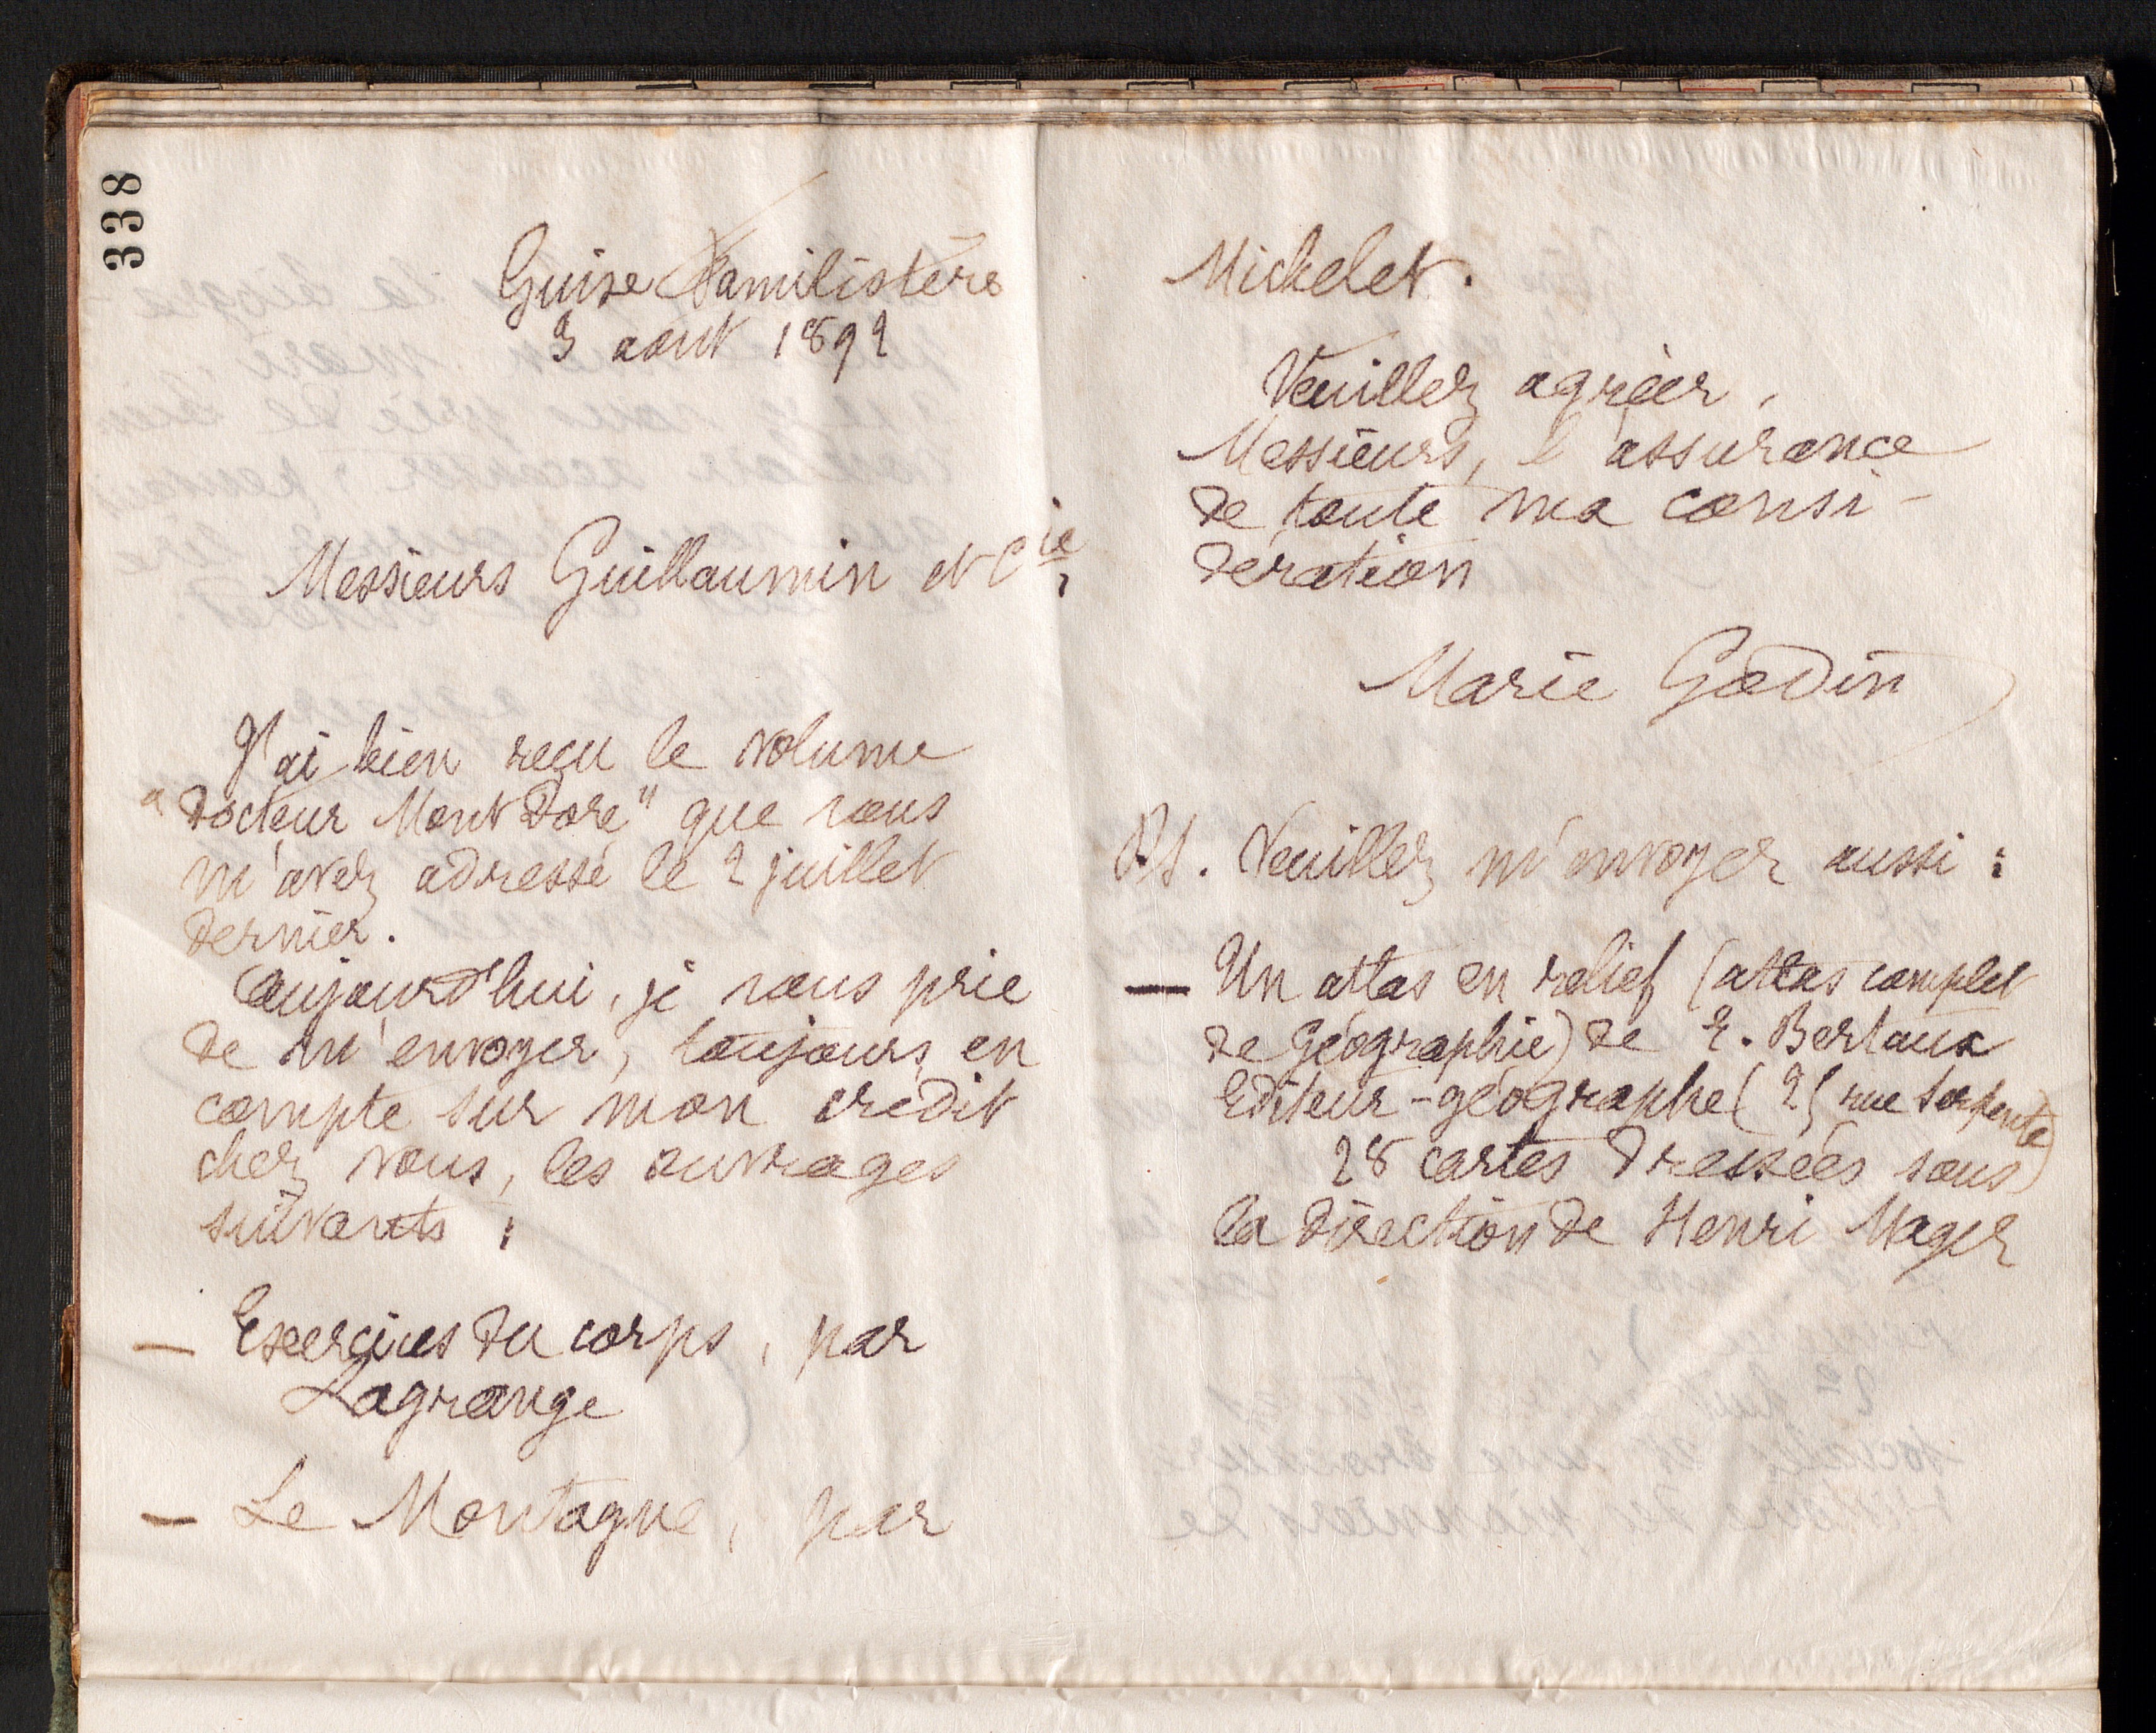 338
Guise Familistère
3 août 1892
Messieurs Guillaumin et Cie,
J'ai bien reçu le volume
"Docteur Mont Dore" que vous
m'avez adressé le 2 juillet
dernier.
Aujourd'hui, je vous prie
de m'envoyer, toujours en
compte sur mon crédit
chez vous, les ouvrages
suivants :
— Exercices du corps, par
Lagrange
— La Montagne, par
Michelet.
Veuillez agréer,
Messieurs, l'assurance
de toute ma consi-
dération
Marie Godin
PS. Veuillez m'envoyer aussi :
— Un atlas en relief (atlas complet
de Géographie) de E. Bertaux
Editeur-géographe (25 rue Serpente)
28 cartes dressées sous
la direction de Henri Mager